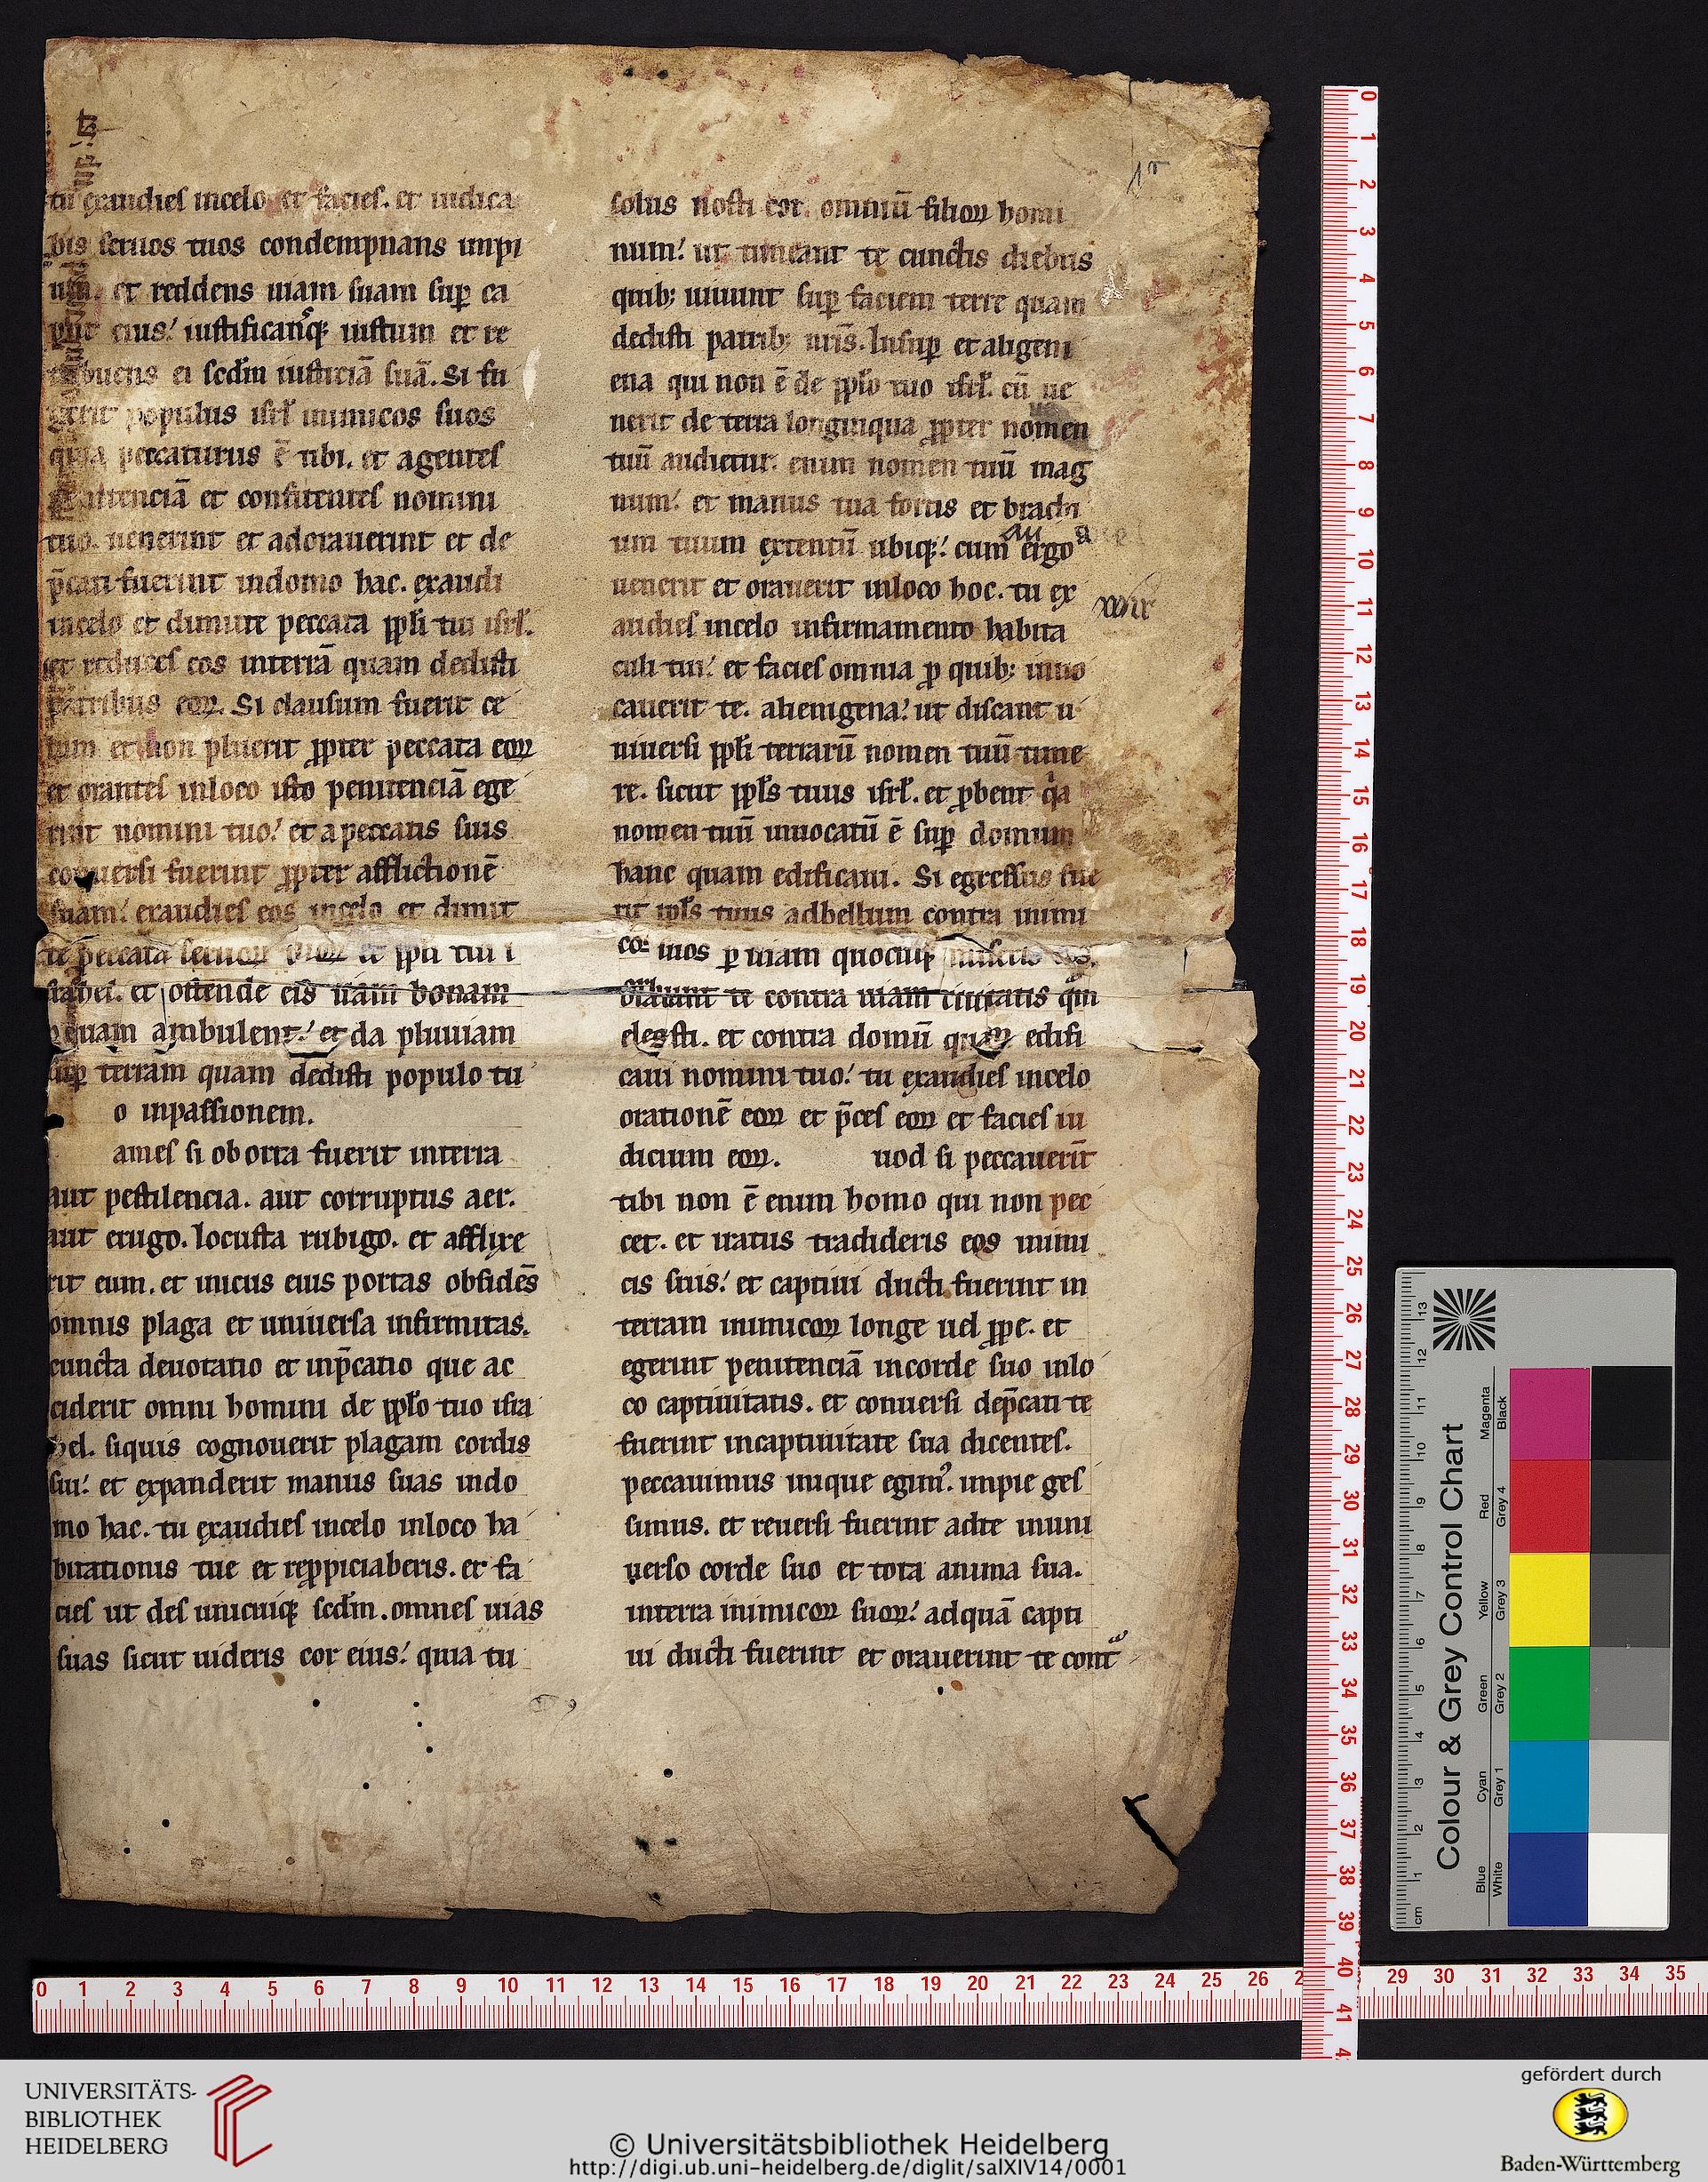 tu exaudies incelo et facies. et iudica
bis seruos tuos condempnans impi
um. et reddens uiam suam sup̱ ca
put eius! iustificansq̱ iustum et re
tribuens ei scd̄m iusticiā suā. Si fu
gerit populus isrl̄ inimicos suos
quia peccaturus ē tibi. et agentes
penitenciā et confitentes nomini
tuo. uenerint et adorauerint et de
p̄cati fuerint indomo hac. exaudi
incelo et dimitte peccata ppl̄i tui isrl̄.
et reduces eos interrā quam dedisti
patribus eoꝝ. Si clausum fuerit ce
lum et non pluerit ꝓpter peccata eoꝝ
et orantes inloco isto penitenciā ege
rint nomini tuo! et apeccatis suis
conuersi fuerint ꝓpter afflictionē
suam! exaudies eos incelo et dimit
te peccata seruoꝝ tuoꝝ et ppl̄i tui i
srahel. et ostende eis uiam bonam
p̱quam ambulent! et da pluuiam
sup̱ terram quam dedisti populo tu
o inpassionem.
ames si oborta fuerit interra
aut pestilencia. aut corruptus aer.
aut erugo. locusta rubigo. et afflixe
rit eum. et inicus eius portas obsidēs
omnis plaga et uniuersa infirmitas.
cuncta deuotatio et inp̄catio que ac
ciderit omni homini de ppl̄o tuo isra
hel. siquis cognouerit plagam cordis
sui! et expanderit manus suas indo
mo hac. tu exaudies incelo inloco ha
bitationis tue et reꝓpiciaberis. et fa
cies ut des unicuiq̱ scd̄m. omnes uias
suas sicut uideris cor eius! quia tu
solus nosti cor. omniū filioꝝ homi
num! ut timeant te cunctis diebus
quib; uiuunt sup̱ faciem terre quam
dedisti patrib; nr̄is. Insup̱ et aligeni
ena qui non ē de ppl̄o tuo isrl̄. cū ue
nerit de terra longinqua ꝓpter nomen
tuū audietur. enim nomen tuū mag
num! et manus tua fortis et brachi
um tuum extentū ubiq̱! cum ergo
uenerit et orauerit inloco hoc. tu ex
audies incelo infirmamento habita
culi tui! et facies omnia ꝓ quib; inuo
cauerit te. alienigena! ut discant u
niuersi ppl̄i terrarū nomen tuū time
re. sicut ppl̄s tuus isrl̄. et ꝓbent qa
nomen tuū inuocatū ē sup̱ domum
hanc quam edificaui. Si egressus fue
rit ppl̄s tuus adbellum contra inimi
cos suos ꝑ uiam quocuq̱ miseris eos.
orabunt te contra uiam ciuitatis qm
elegisti. et contra domū quam edifi
caui nomini tuo! tu exaudies incelo
orationē eoꝝ et p̄ces eoꝝ et facies iu
dicium eoꝝ. uod si peccauerīt
tibi non ē enim homo qui non pec
cet. et iratus tradideris eos inimi
cis suis! et captiui ducti fuerint in
terram inimicoꝝ longe uel ꝓpe. et
egerint penitenciā incorde suo inlo
co captiuitatis. et conuersi dep̄cati te
fuerint incaptiuitate sua dicentes.
peccauimus inique egim᷒. impie ges
simus. et reuersi fuerint adte inuni
uerso corde suo et tota anima sua.
interra inimicoꝝ suoꝝ! adquā capti
ui ducti fuerint et orauerint te cont
Colour & Grey Control Chart
Blue Cyan Green Yellow Red Magenta
White Grey 1 Grey 2 Grey 3 Grey 4 Black
cm 1 2 3 4 5 6 7 8 9 10 11 12 13
UNIVERSITÄTS-
BIBLIOTHEK
HEIDELBERG
© Universitätsbibliothek Heidelberg
http://digi.ub.uni-heidelberg.de/diglit/salXIV14/0001
gefördert durch
Baden-Württemberg